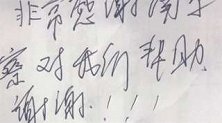 非常感谢
察对我们帮助
谢谢!!!